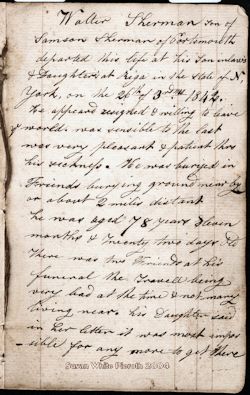 Walter Sherman Son of
Samson Sherman of Portsmouth
departed this life at his Son in laws
& Daughters at Riga in the State of N.
York, on the 26th of 3rd mo 1842.
He appeared resigned & willing to leave
world. was sensible to the last
was very pleasant & patient thro
his sickness. He was buried in
Friends burying ground near by
or about 2 miles distant
he was aged 78 years Eleven
months & Twenty two days
There was two Friends at his
funeral the Travell being
very bad at the time & not many
living near. his Daughter said
in her letter it was most impos
-sible for any more to get there
Susan White Pieroth 2004